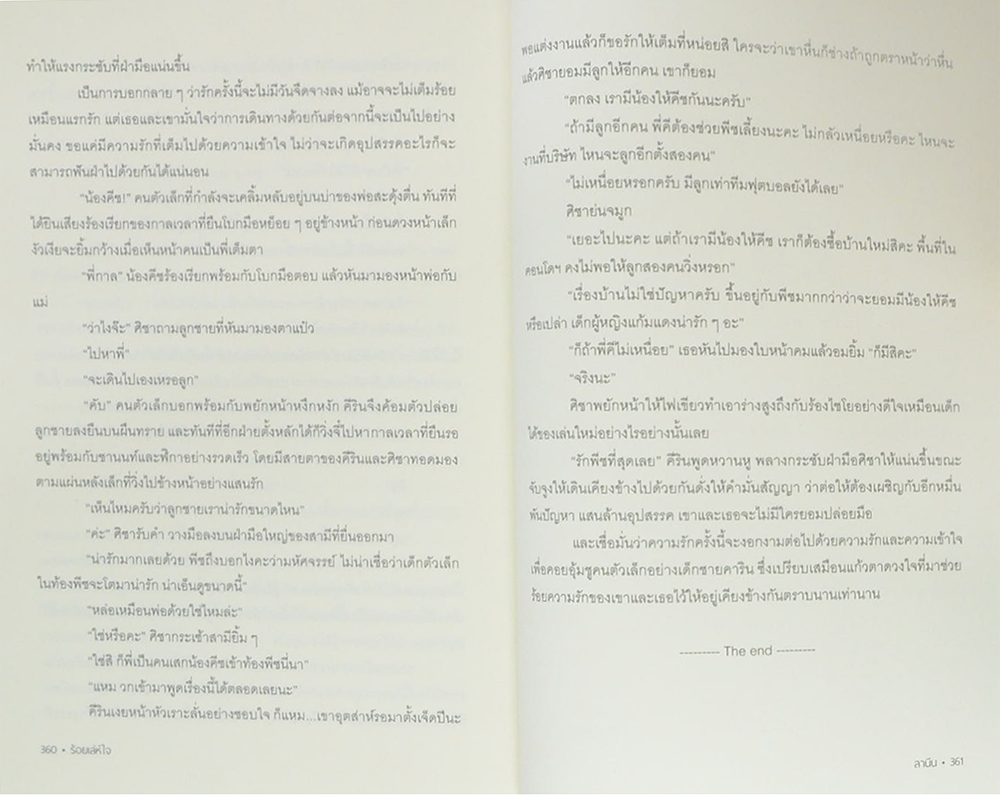 ทำให้แรงกระชับที่ฝ่ามือแน่นขึ้น
เป็นการบอกกลาย ๆ ว่ารักครั้งนี้จะไม่มีวันจืดจางลง แม้อาจจะไม่เต็มร้อย
เหมือนแรกรัก แต่เธอและเขามั่นใจว่าการเดินทางด้วยกันต่อจากนี้จะเป็นไปอย่าง
มั่นคง ขอแค่มีความรักที่เต็มไปด้วยความเข้าใจ ไม่ว่าจะเกิดอุปสรรคอะไรก็จะ
สามารถฟันฝ่าไปด้วยกันได้แน่นอน
“น้องคีช!” คนตัวเล็กที่กำลังจะเคลิ้มหลับอยู่บนบ่าของพ่อสะดุ้งตื่น ทันทีที่
ได้ยินเสียงร้องเรียกของกาลเวลาที่ยืนโบกมือหย็อย ๆ อยู่ข้างหน้า ก่อนดวงหน้าเล็ก
งัวเงียจะยิ้มกว้างเมื่อเห็นหน้าคนเป็นพี่เต็มตา
“พี่กาล” น้องคีชร้องเรียกพร้อมกับโบกมือตอบ แล้วหันมามองหน้าพ่อกับ
แม่
“ว่าไงจ๊ะ” ศิชาถามลูกชายที่หันมามองตาแป๋ว
“ไปหาพี่”
“จะเดินไปเองเหรอลูก”
“คับ” คนตัวเล็กบอกพร้อมกับพยักหน้าหงึกหงัก คีรินจึงค้อมตัวปล่อย
ลูกชายลงยืนบนผืนทราย และทันทีที่อีกฝ่ายตั้งหลักได้ก็วิ่งจี๋ไปหากาลเวลาที่ยืนรอ
อยู่พร้อมกับชานนท์และฟีกาอย่างรวดเร็ว โดยมีสายตาของคีรินและศิชาทอดมอง
ตามแผ่นหลังเล็กที่วิ่งไปข้างหน้าอย่างแสนรัก
“เห็นไหมครับว่าลูกชายเราน่ารักขนาดไหน”
“ค่ะ” ศิชารับคำ วางมือลงบนฝ่ามือใหญ่ของสามีที่ยื่นออกมา
“น่ารักมากเลยด้วย พีชถึงบอกไงคะว่ามหัศจรรย์ ไม่น่าเชื่อว่าเด็กตัวเล็ก
ในท้องพีชจะโตมาน่ารัก น่าเอ็นดูขนาดนี้”
“หล่อเหมือนพ่อด้วยใช่ไหมล่ะ”
“ใช่หรือคะ” ศิชากระเซ้าสามียิ้ม ๆ
“ใช่สิ ก็พี่เป็นคนเสกน้องคีชเข้าท้องพีชนี่นา”
“แหม วกเข้ามาพูดเรื่องนี้ได้ตลอดเลยนะ”
คีรินเงยหน้าหัวเราะลั่นอย่างชอบใจ ก็แหม...เขาอุตส่าห์รอมาตั้งเจ็ดปีนะ
360 • ร้อยเล่ห์ใจ
พอแต่งงานแล้วก็ขอรักให้เต็มที่หน่อยสิ ใครจะว่าเขาหื่นก็ช่างถ้าถูกตราหน้าว่าหื่น
แล้วศิชายอมมีลูกให้อีกคน เขาก็ยอม
“ตกลง เรามีน้องให้คีชกันนะครับ”
“ถ้ามีลูกอีกคน พี่คีต้องช่วยพีชเลี้ยงนะคะ ไม่กลัวเหนื่อยหรือคะ ไหนจะ
งานที่บริษัท ไหนจะลูกอีกตั้งสองคน”
“ไม่เหนื่อยหรอกครับ มีลูกเท่าทีมฟุตบอลยังได้เลย”
ศิชาย่นจมูก
“เยอะไปนะคะ แต่ถ้าเรามีน้องให้คีช เราก็ต้องซื้อบ้านใหม่สิคะ พื้นที่ใน
คอนโดฯ คงไม่พอให้ลูกสองคนวิ่งหรอก”
“เรื่องบ้านไม่ใช่ปัญหาครับ ขึ้นอยู่กับพีชมากกว่าว่าจะยอมมีน้องให้คีช
หรือเปล่า เด็กผู้หญิงแก้มแดงน่ารัก ๆ อะ”
“ก็ถ้าพี่คีไม่เหนื่อย” เธอหันไปมองใบหน้าคมแล้วอมยิ้ม “ก็มีสิคะ”
“จริงนะ”
ศิชาพยักหน้าให้ไฟเขียวทำเอาร่างสูงถึงกับร้องไชโยอย่างดีใจเหมือนเด็ก
ได้ของเล่นใหม่อย่างไรอย่างนั้นเลย
“รักพีชที่สุดเลย” คีรินพูดหวานหู พลางกระชับฝ่ามือศิชาให้แน่นขึ้นขณะ
จับจูงให้เดินเคียงข้างไปด้วยกันดั่งให้คำมั่นสัญญา ว่าต่อให้ต้องเผชิญกับอีกหมื่น
พันปัญหา แสนล้านอุปสรรค เขาและเธอจะไม่มีใครยอมปล่อยมือ
และเชื่อมั่นว่าความรักครั้งนี้จะงอกงามต่อไปด้วยความรักและความเข้าใจ
เพื่อคอยอุ้มชูคนตัวเล็กอย่างเด็กชายคาริน ซึ่งเปรียบเสมือนแก้วตาดวงใจที่มาช่วย
ร้อยความรักของเขาและเธอไว้ให้อยู่เคียงข้างกันตราบนานเท่านาน
--------- The end ---------
ลามีน • 361